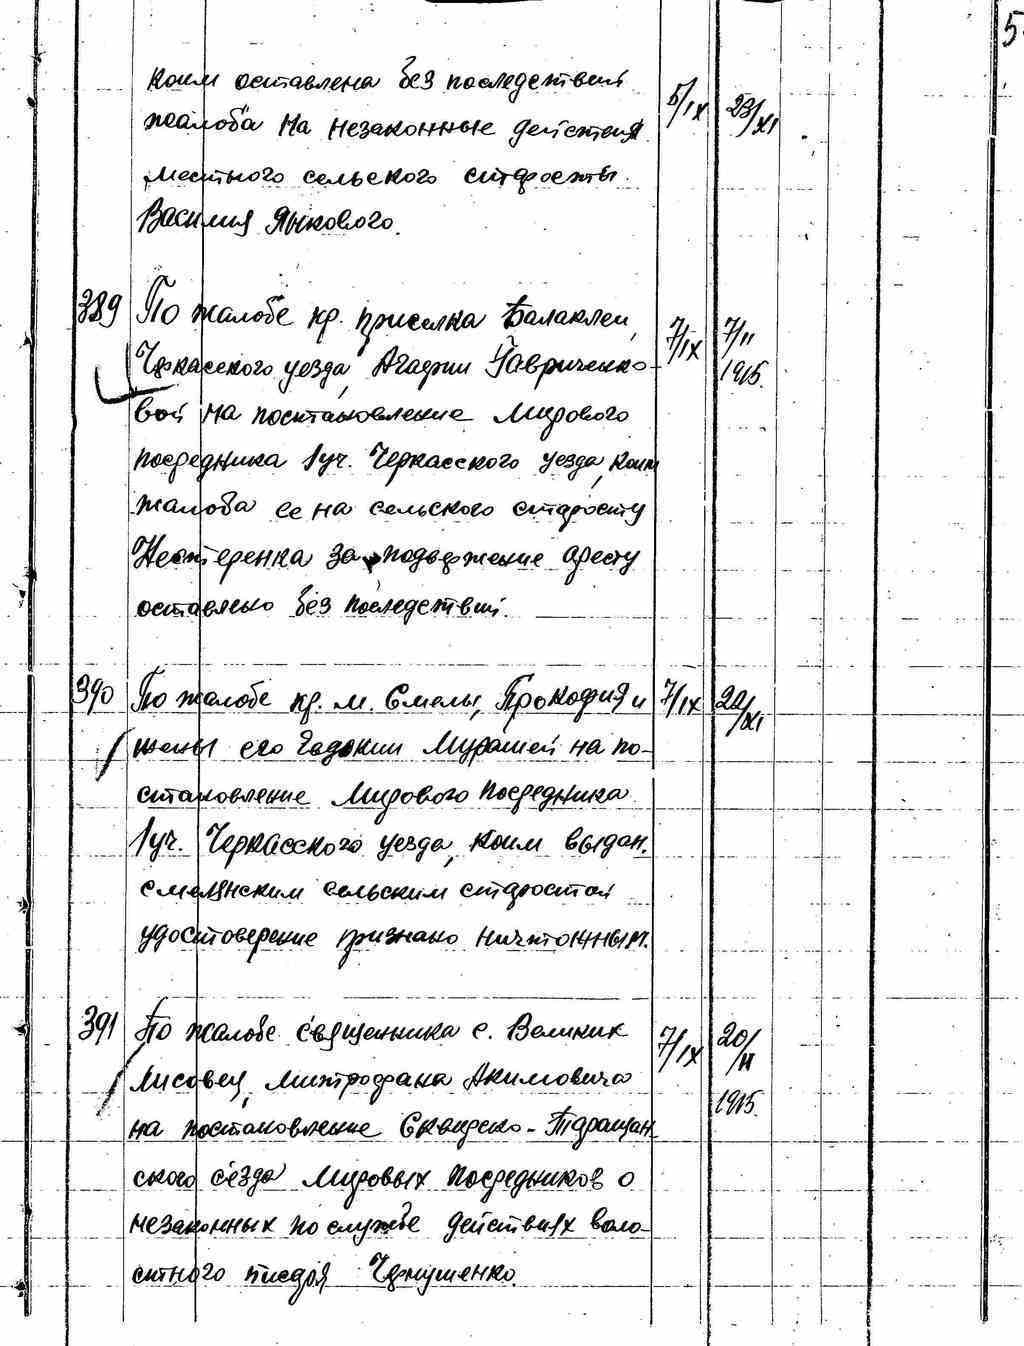 5
коим оставлена без последствий 5/IX 23/XI
жалоба на незаконные действия
местного сельского старосты
Василия Янкового.
389 По жалобе кр. приселка Балаклеи, 7/IX 7/II
Черкасского уезда, Агафии Гавриченко- 1915.
вой на постановление Мирового
посредника 1 уч. Черкасского уезда, коим
жалоба ее на сельского старосту
Нестеренка за подвержение аресту
оставлено без последствий.
390 По жалобе кр. м. Смелы, Прокофия и 7/IX 22/XI
жены его Евдокии Мурашей на по-
становление Мирового Посредника
1 уч. Черкасского уезда, коим выдан.
смелянским сельским старостой
удостоверение признано ничтожным.
391 По жалобе священника с. Великих 7/IX 20/II
Лисовец, Митрофана Акимовича 1915.
на постановление Сквирско-Таращан
ского с'езда Мировых Посредников о
незаконных по службе действиях воло-
стного писаря Чернушенко.